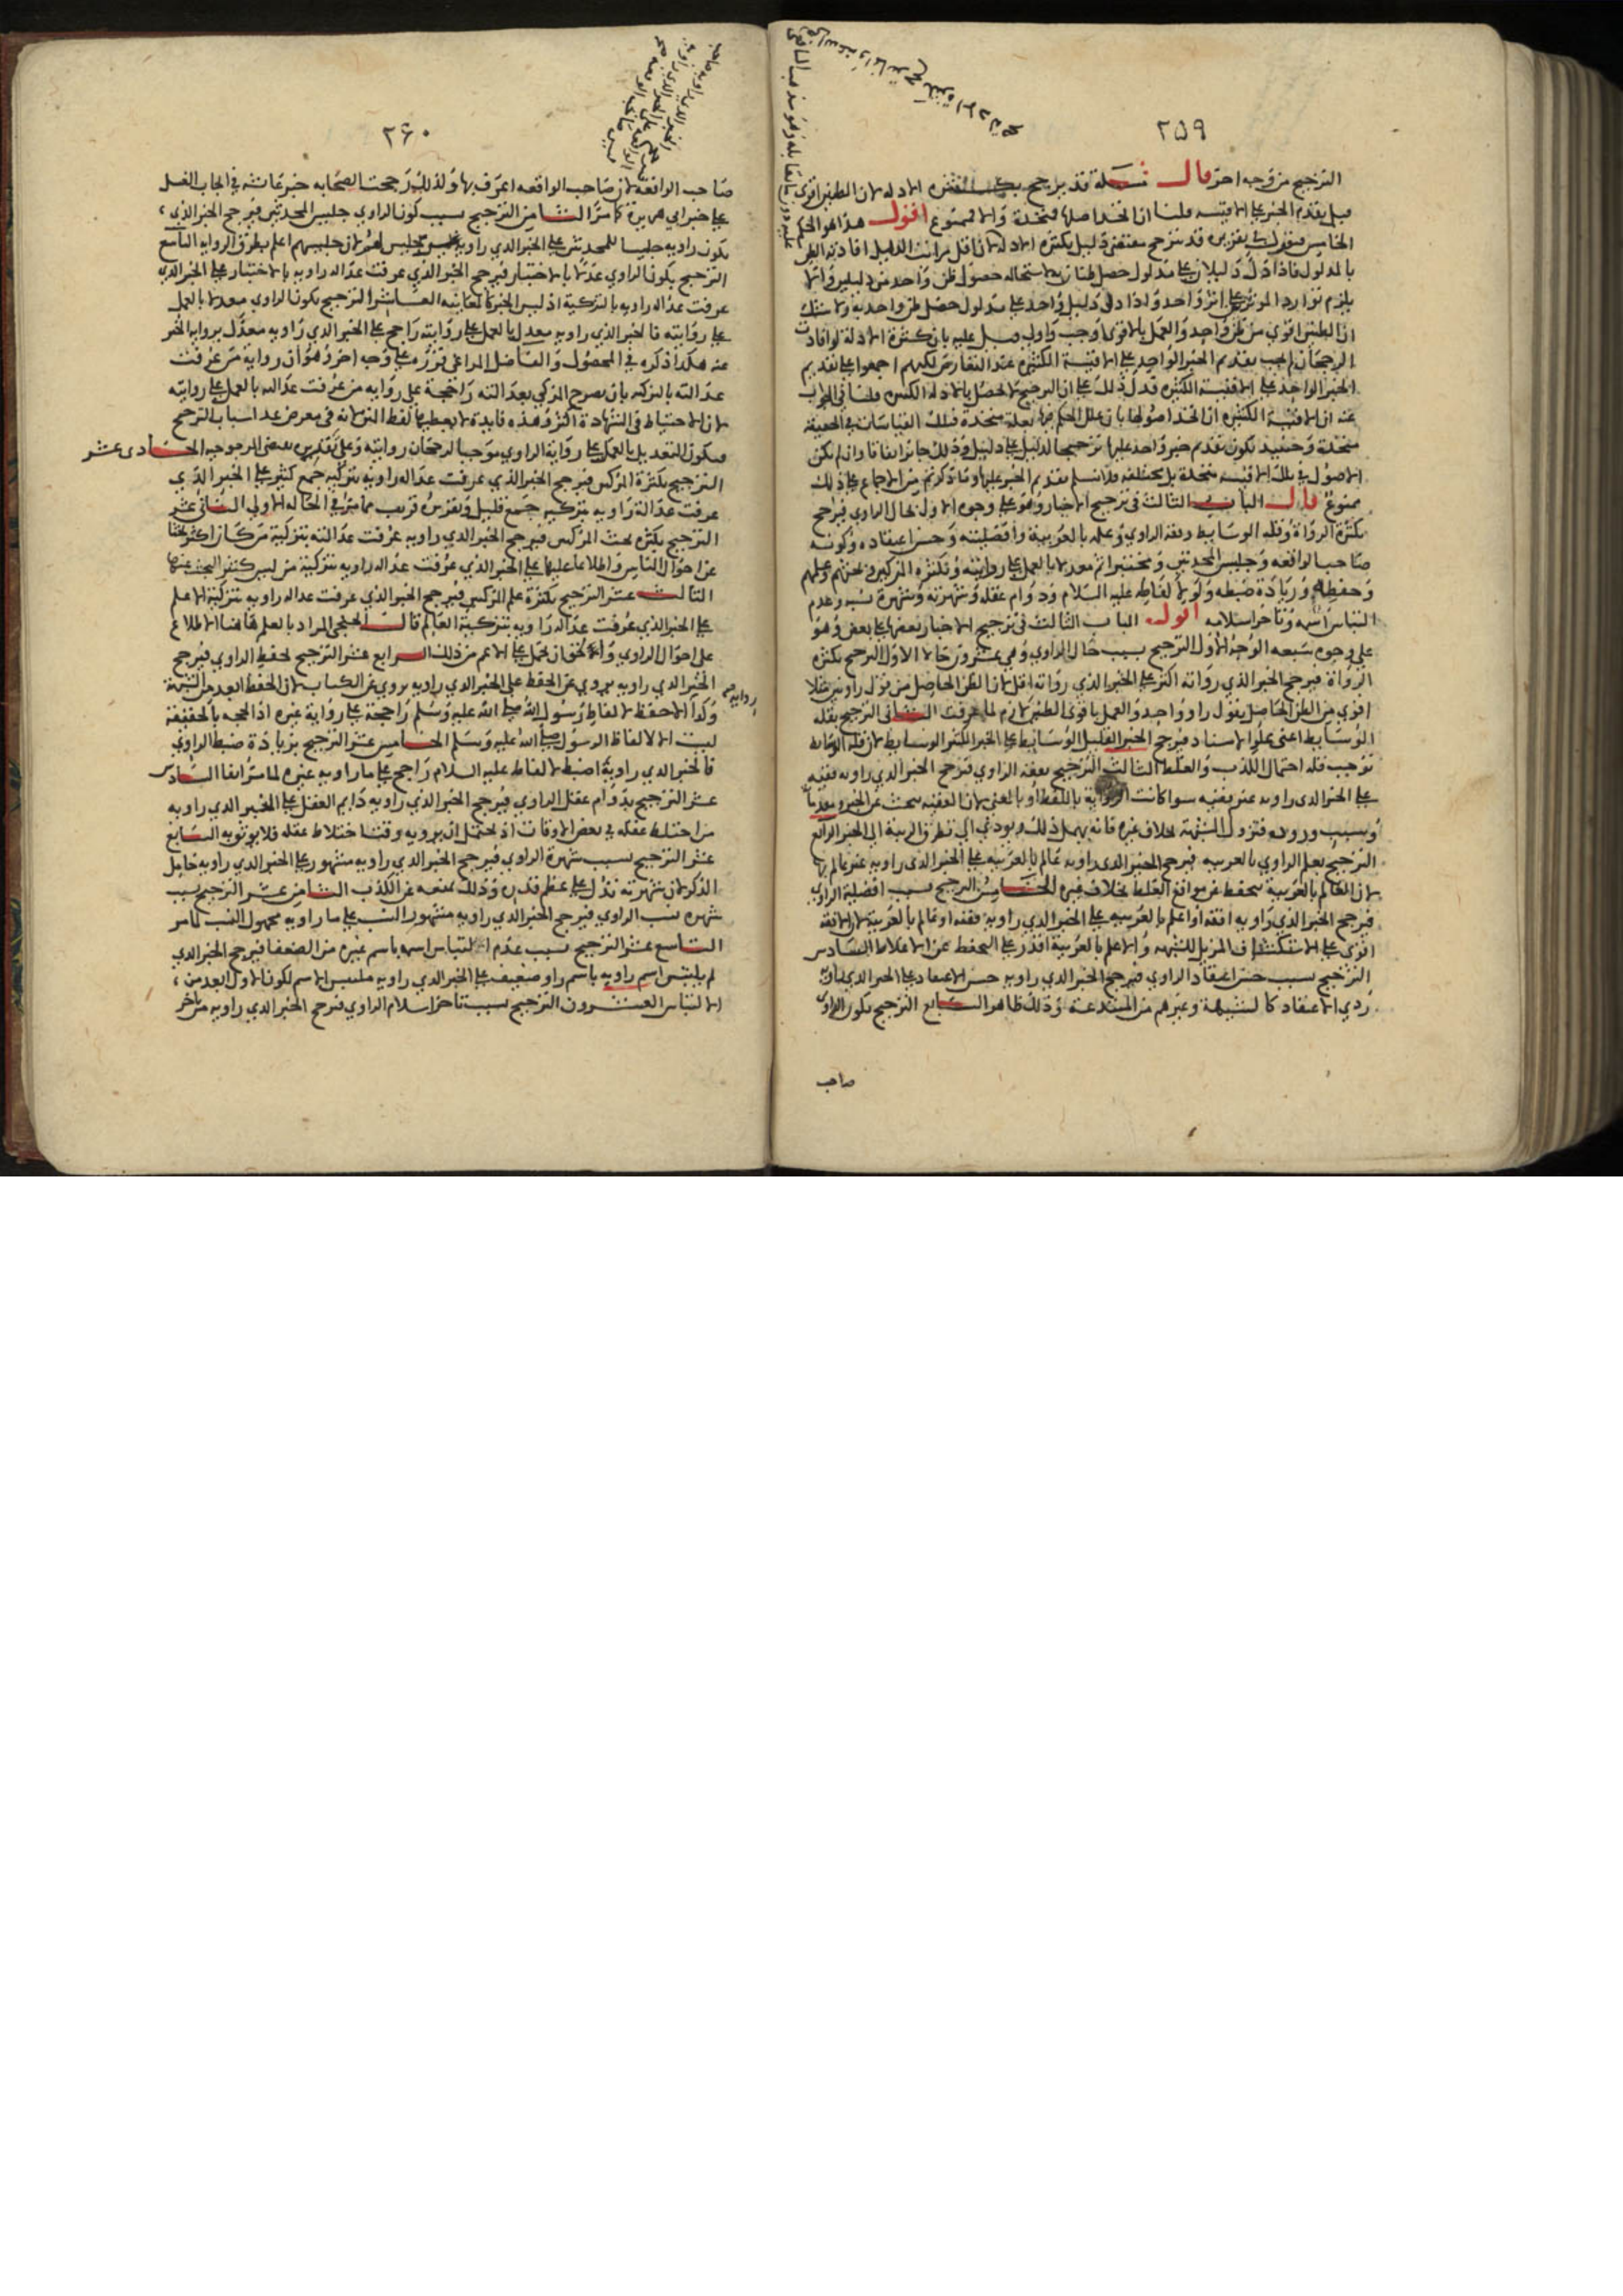 ٢٥٩
الترجيح من وجه اخر قال مسئلة قد يرجح بكثرة الادلة لان الظنين اقوى
قيل يقدم الخبر على الاقيسة قلنا ان اتحد اصلها فمتحدة والا فممنوع اقول هذا هو الحكم
الخامس في تقريره قد يترجح مقتضى دليل بكثرة الادلة لان اقل مراتب الدليل افادته الظن
بالمدلول فاذا دل دليلان على مدلول حصل ظنان لاستحالة حصول ظن واحد من دليلين والا
يلزم توارد المؤثرين على اثر واحد واذا دل دليل واحد على مدلول حصل ظن واحد به ولا شك
ان الظنين اقوى من ظن واحد والعمل بالاقوى اوجب واولى قيل عليه بان كثرة الادلة لو افادت
الرجحان لم يجب تقديم الخبر الواحد على الاقيسة الكثيرة عند التعارض لكنهم اجمعوا على تقديم
الخبر الواحد على الاقيسة الكثيرة فدل ذلك على ان الترجيح لا يحصل بالادلة الكثيرة قلنا في الجواب
عنه ان الاقيسة الكثيرة ان اتحد اصولها بان علل الحكم فيها بعلة متحدة فتلك القياسات في الحقيقة
متحدة وحينئذ يكون تقديم خبر واحد عليها ترجيحا لدليل على دليل وذلك جائز اتفاقا وان لم تكن
الاصول في تلك الاقيسة متحدة بل مختلفة فلا نسلم تقديم الخبر عليها وما ذكرتم من الاجماع على ذلك
ممنوع قال الباب الثالث في ترجيح الاخبار وهو على وجوه الاول بحال الراوي فيرجح
بكثرة الرواة وقلة الوسائط وفقه الراوي وعلمه بالعربية وافضليته وحسن اعتقاده وكونه
صاحب الواقعة وجليس المحدثين ومختبرا ثم معدلا بالعمل على روايته وبكثرة المزكين وبحثهم وعلمهم
وحفظه وزيادة ضبطه ولو لالفاظه عليه السلام ودوام عقله وشهرته وشهرة نسبه وعدم
التباس اسمه وتاخر اسلامه اقول الباب الثالث في ترجيح الاخبار بعضها على بعض وهو
على وجوه سبعة الوجه الاول الترجيح بسبب حال الراوي وهي عشرون حالا الاول الترجيح بكثرة
الرواة فيرجح الخبر الذي رواته اكثر على الخبر الذي رواته اقل لان الظن الحاصل من قول راويين مثلا
اقوى من الظن الحاصل بقول راو واحد والعمل باقوى الظنين لازم لما عرفت الثاني الترجيح بقلة
الوسائط اعني علو الاسناد فيرجح الخبر القليل الوسائط على الخبر الكثير الوسائط لان قلة الوسائط
توجب قلة احتمال الكذب والغلط الثالث الترجيح بفقه الراوي فيرجح الخبر الذي راويه فقيه
على الخبر الذي راويه غير فقيه سوا كانت الرواية باللفظ او بالمعنى لان الفقيه يبحث عن الخبر
وسبب وروده فتزول الشبهة بخلاف غيره فانه يهمل ذلك ويودي الى تطرق الريبة الى الخبر الرابع
الترجيح بعلم الراوي بالعربية فيرجح الخبر الذي راويه عالم بالعربية على الخبر الذي راويه غير عالم بها
لان العالم بالعربية يتحفظ عن مواقع الغلط بخلاف غيره الخامس الترجيح بسبب افضلية الراوي
فيرجح الخبر الذي راويه افقه او اعلم بالعربية على الخبر الذي راويه فقيه او عالم بالعربية لان الافقه
اقوى على الاستكشاف المزيل للشبهة والاعلم بالعربية اقدر على التحفظ عن الاغلاط السادس
الترجيح بسبب حسن اعتقاد الراوي فيرجح الخبر الذي راويه حسن الاعتقاد على الخبر الذي راويه
ردي الاعتقاد كالمشبهة وغيرهم من المبتدعة وذلك ظاهر السابع الترجيح بكون الراوي
صاحب
٢٦٠
صاحب الواقعة لان صاحب الواقعة اعرف بها ولذلك رجحت الصحابة خبر عائشة في ايجاب الغسل
على خبر ابي هريرة كما مر الثامن الترجيح بسبب كون الراوي جليس المحدثين فيرجح الخبر الذي
يكون راويه جليسا للمحدثين على الخبر الذي راويه غير جليس لهم لان جليسهم اعلم بطرق الرواية التاسع
الترجيح بكون الراوي عدلا بالاختبار فيرجح الخبر الذي عرفت عدالة راويه بالاختبار على الخبر الذي
عرفت عدالة راويه بالتزكية اذ ليس الخبر كالمعاينة العاشر الترجيح بكون الراوي معدلا بالعمل
على روايته فالخبر الذي راويه معدل بالعمل على روايته راجح على الخبر الذي راويه معدل برواية الخبر
عنه هكذا ذكره في المحصول والفاضل المراغي قرره على وجه اخر وهو ان رواية من عرفت
عدالته بالتزكية بان يصرح المزكي بعدالته راجحة على رواية من عرفت عدالته بالعمل على روايته
لان الاحتياط في الشهادة اكثر وهذه فايدة لا يعطيها لفظ المتن لانه في معرض عد اسباب الترجيح
فيكون التعديل بالعمل على رواية الراوي موجبا لرجحان روايته وعلى تقديره يقتضي المرجوحية الحادى عشر
الترجيح بكثرة المزكين فيرجح الخبر الذي عرفت عدالة راويه بتزكية جمع كثير على الخبر الذي
عرفت عدالة راويه بتزكية جمع قليل وتقريره قريب مما مر في الحالة الاولى الثاني عشر
الترجيح بكثرة بحث المزكين فيرجح الخبر الذي راويه عرفت عدالته بتزكية من كان اكثر بحثا
عن احوال الناس واطلاعا عليها على الخبر الذي عرفت عدالة راويه بتزكية من ليس كثير البحث عنها
الثالث عشر الترجيح بكثرة علم المزكين فيرجح الخبر الذي عرفت عدالة راويه بتزكية الاعلم
على الخبر الذي عرفت عدالة راويه بتزكية العالم قال الخنجي المراد بالعلم هاهنا الاطلاع
على احوال الراوي والحق ان يحمل على الاعم من ذلك الرابع عشر الترجيح بحفظ الراوي فيرجح
الخبر الذي راويه يروي عن الحفظ على الخبر الذي راويه يروي عن الكتاب لان الحفظ ابعد من الشبهة
وكذا الاحفظ لالفاظ رسول الله صلى الله عليه وسلم راجحة على رواية غيره اذ الحجة بالحقيقة
ليست الا لالفاظ الرسول صلى الله عليه وسلم الخامس عشر الترجيح بزيادة ضبط الراوي
فالخبر الذي راويه اضبط لالفاظه عليه السلام راجح على ما راويه غيره لما مر انفا السادس
عشر الترجيح بدوام عقل الراوي فيرجح الخبر الذي راويه دايم العقل على الخبر الذي راويه
من اختلط عقله في بعض الاوقات اذ يحتمل ان يرويه وقت اختلاط عقله فلا يوثق به السابع
عشر الترجيح بسبب شهرة الراوي فيرجح الخبر الذي راويه مشهور على الخبر الذي راويه خامل
الذكر لان شهرته تدل على عظم قدره وذلك يمنعه عن الكذب الثامن عشر الترجيح بسبب
شهرة نسب الراوي فيرجح الخبر الذي راويه مشهور النسب على ما راويه مجهول النسب لما مر
التاسع عشر الترجيح بسبب عدم التباس اسمه باسم غيره من الضعفا فيرجح الخبر الذي
لم يلتبس اسم راويه باسم راو ضعيف على الخبر الذي راويه ملتبس الاسم لكون الاول ابعد من
الالتباس العشرون الترجيح بسبب تاخر اسلام الراوي فيرجح الخبر الذي راويه متاخر